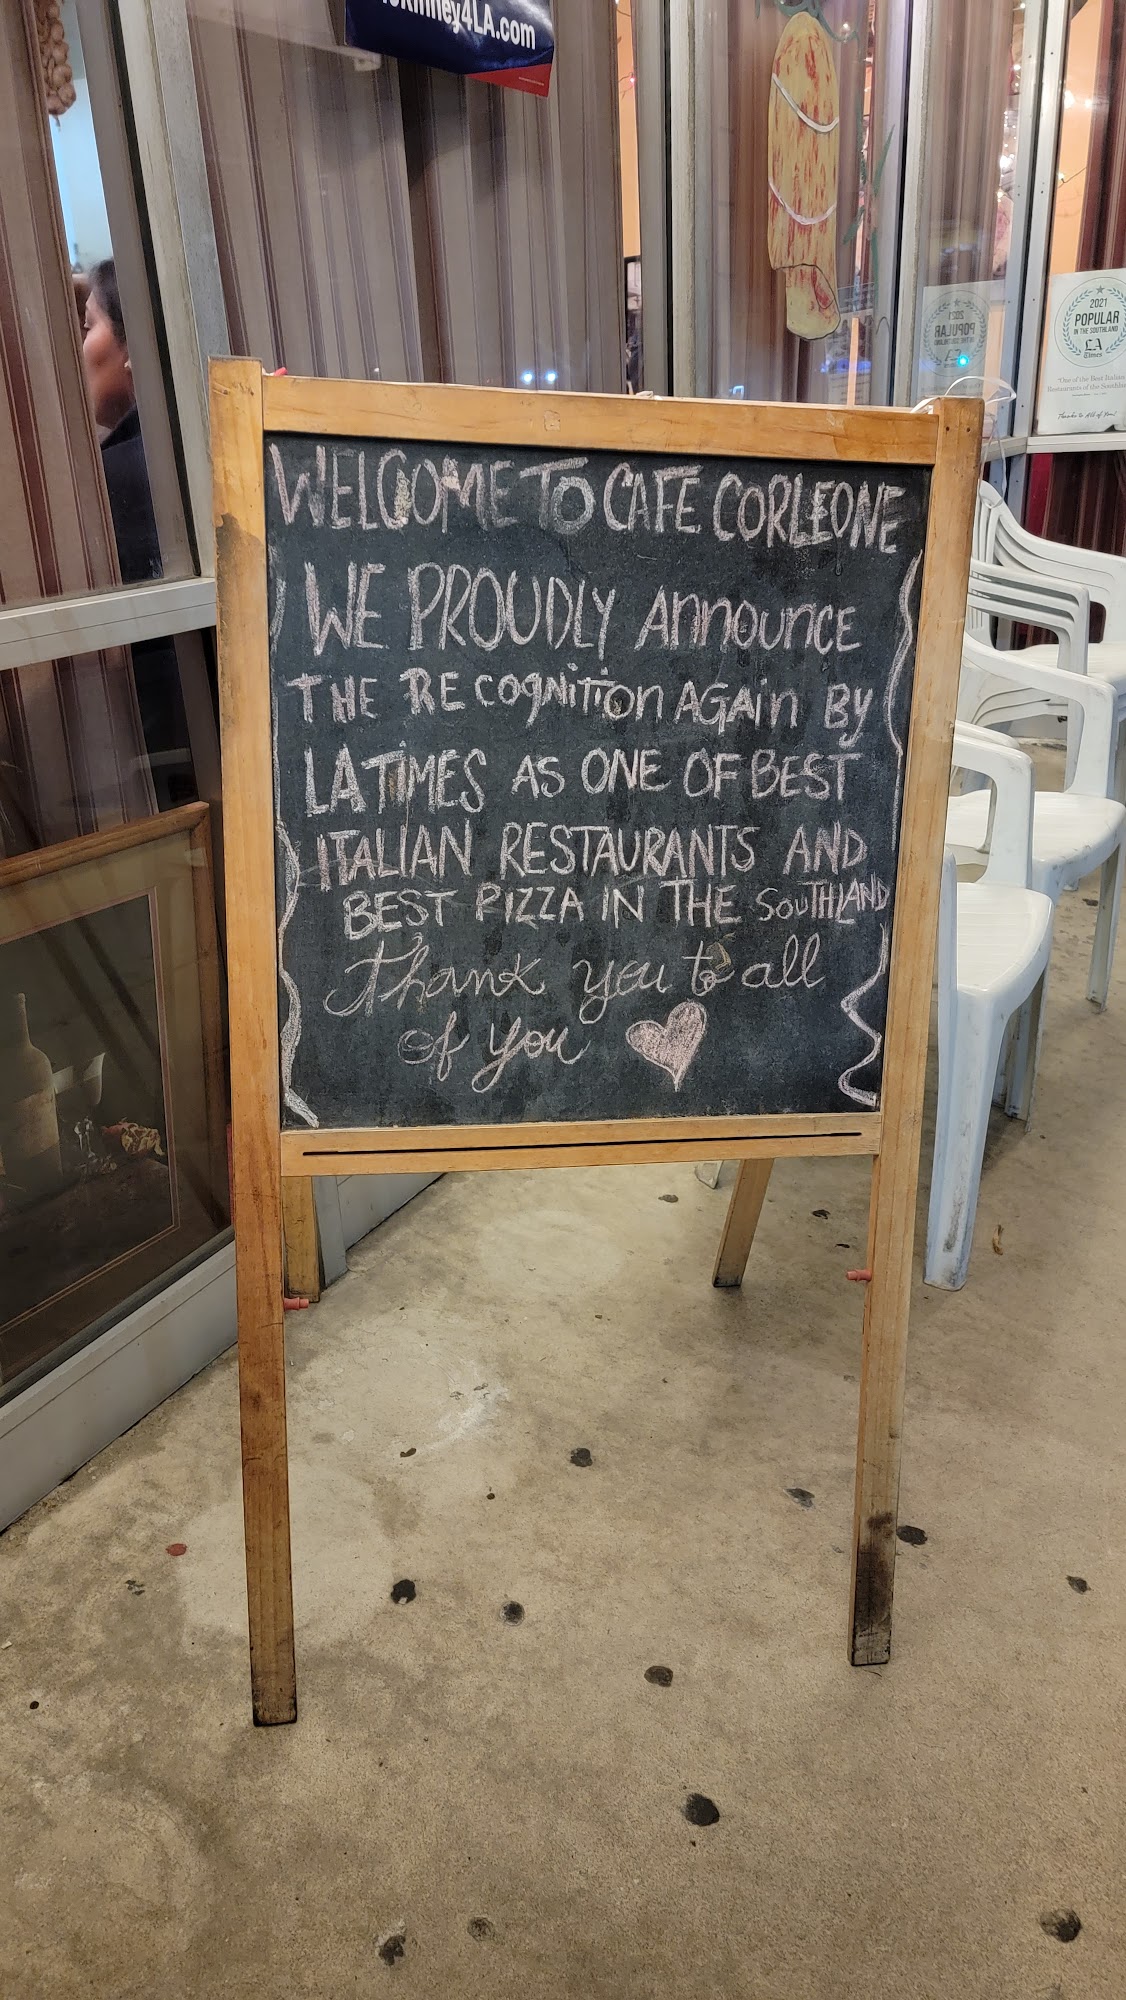 4LA.com
2021
POPULAR
IN THE SOUTHLAND
LA
Times
"One of the Best Italian
Restaurants of the Southland
Thanks to All of You!
WELCOME TO CAFE CORLEONE
WE PROUDLY AnnOUNCE
THE RECOgNiTiOn AGAin BY
LA TiMES AS ONE OF BEST
ITALIAN RESTAURANTS AND
BEST PIZZA IN THE SOUTHLAND
Thank you to all
of you